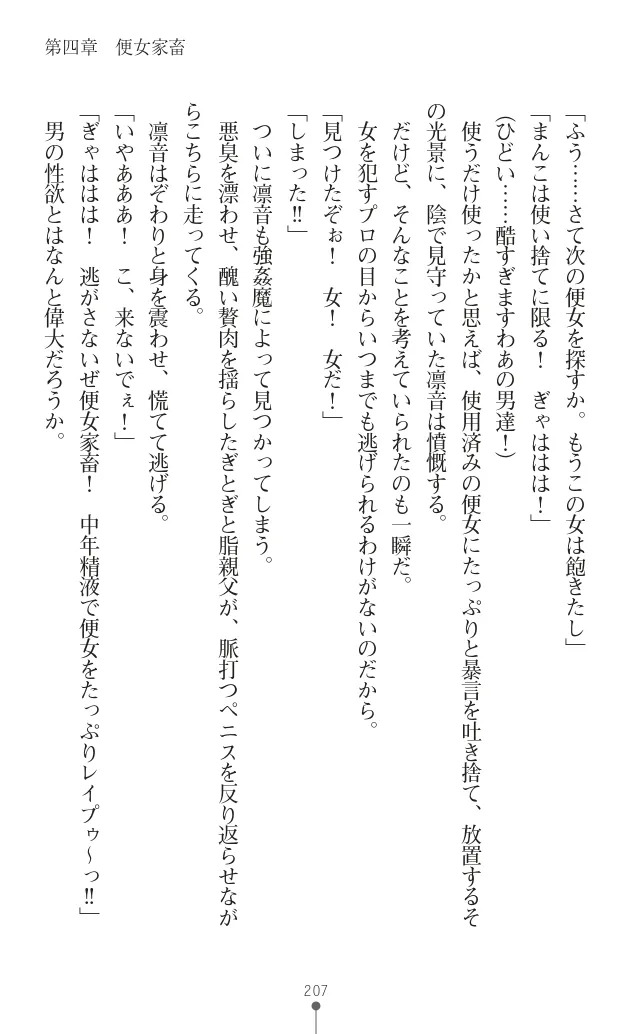 第四章　便女家畜
「ふう……さて次の便女を探すか。もうこの女は飽きたし」
「まんこは使い捨てに限る！　ぎゃははは！」
（ひどい……酷すぎますわあの男達！）
　使うだけ使ったかと思えば、使用済みの便女にたっぷりと暴言を吐き捨て、放置するそ
の光景に、陰で見守っていた凛音は憤慨する。
　だけど、そんなことを考えていられたのも一瞬だ。
　女を犯すプロの目からいつまでも逃げられるわけがないのだから。
「見つけたぞぉ！　女！　女だ！」
「しまった‼」
　ついに凛音も強姦魔によって見つかってしまう。
　悪臭を漂わせ、醜い贅肉を揺らしたぎとぎと脂親父が、脈打つペニスを反り返らせなが
らこちらに走ってくる。
　凛音はぞわりと身を震わせ、慌てて逃げる。
「いやあああ！　こ、来ないでぇ！」
「ぎゃははは！　逃がさないぜ便女家畜！　中年精液で便女をたっぷりレイプゥ～っ‼」
　男の性欲とはなんと偉大だろうか。
207